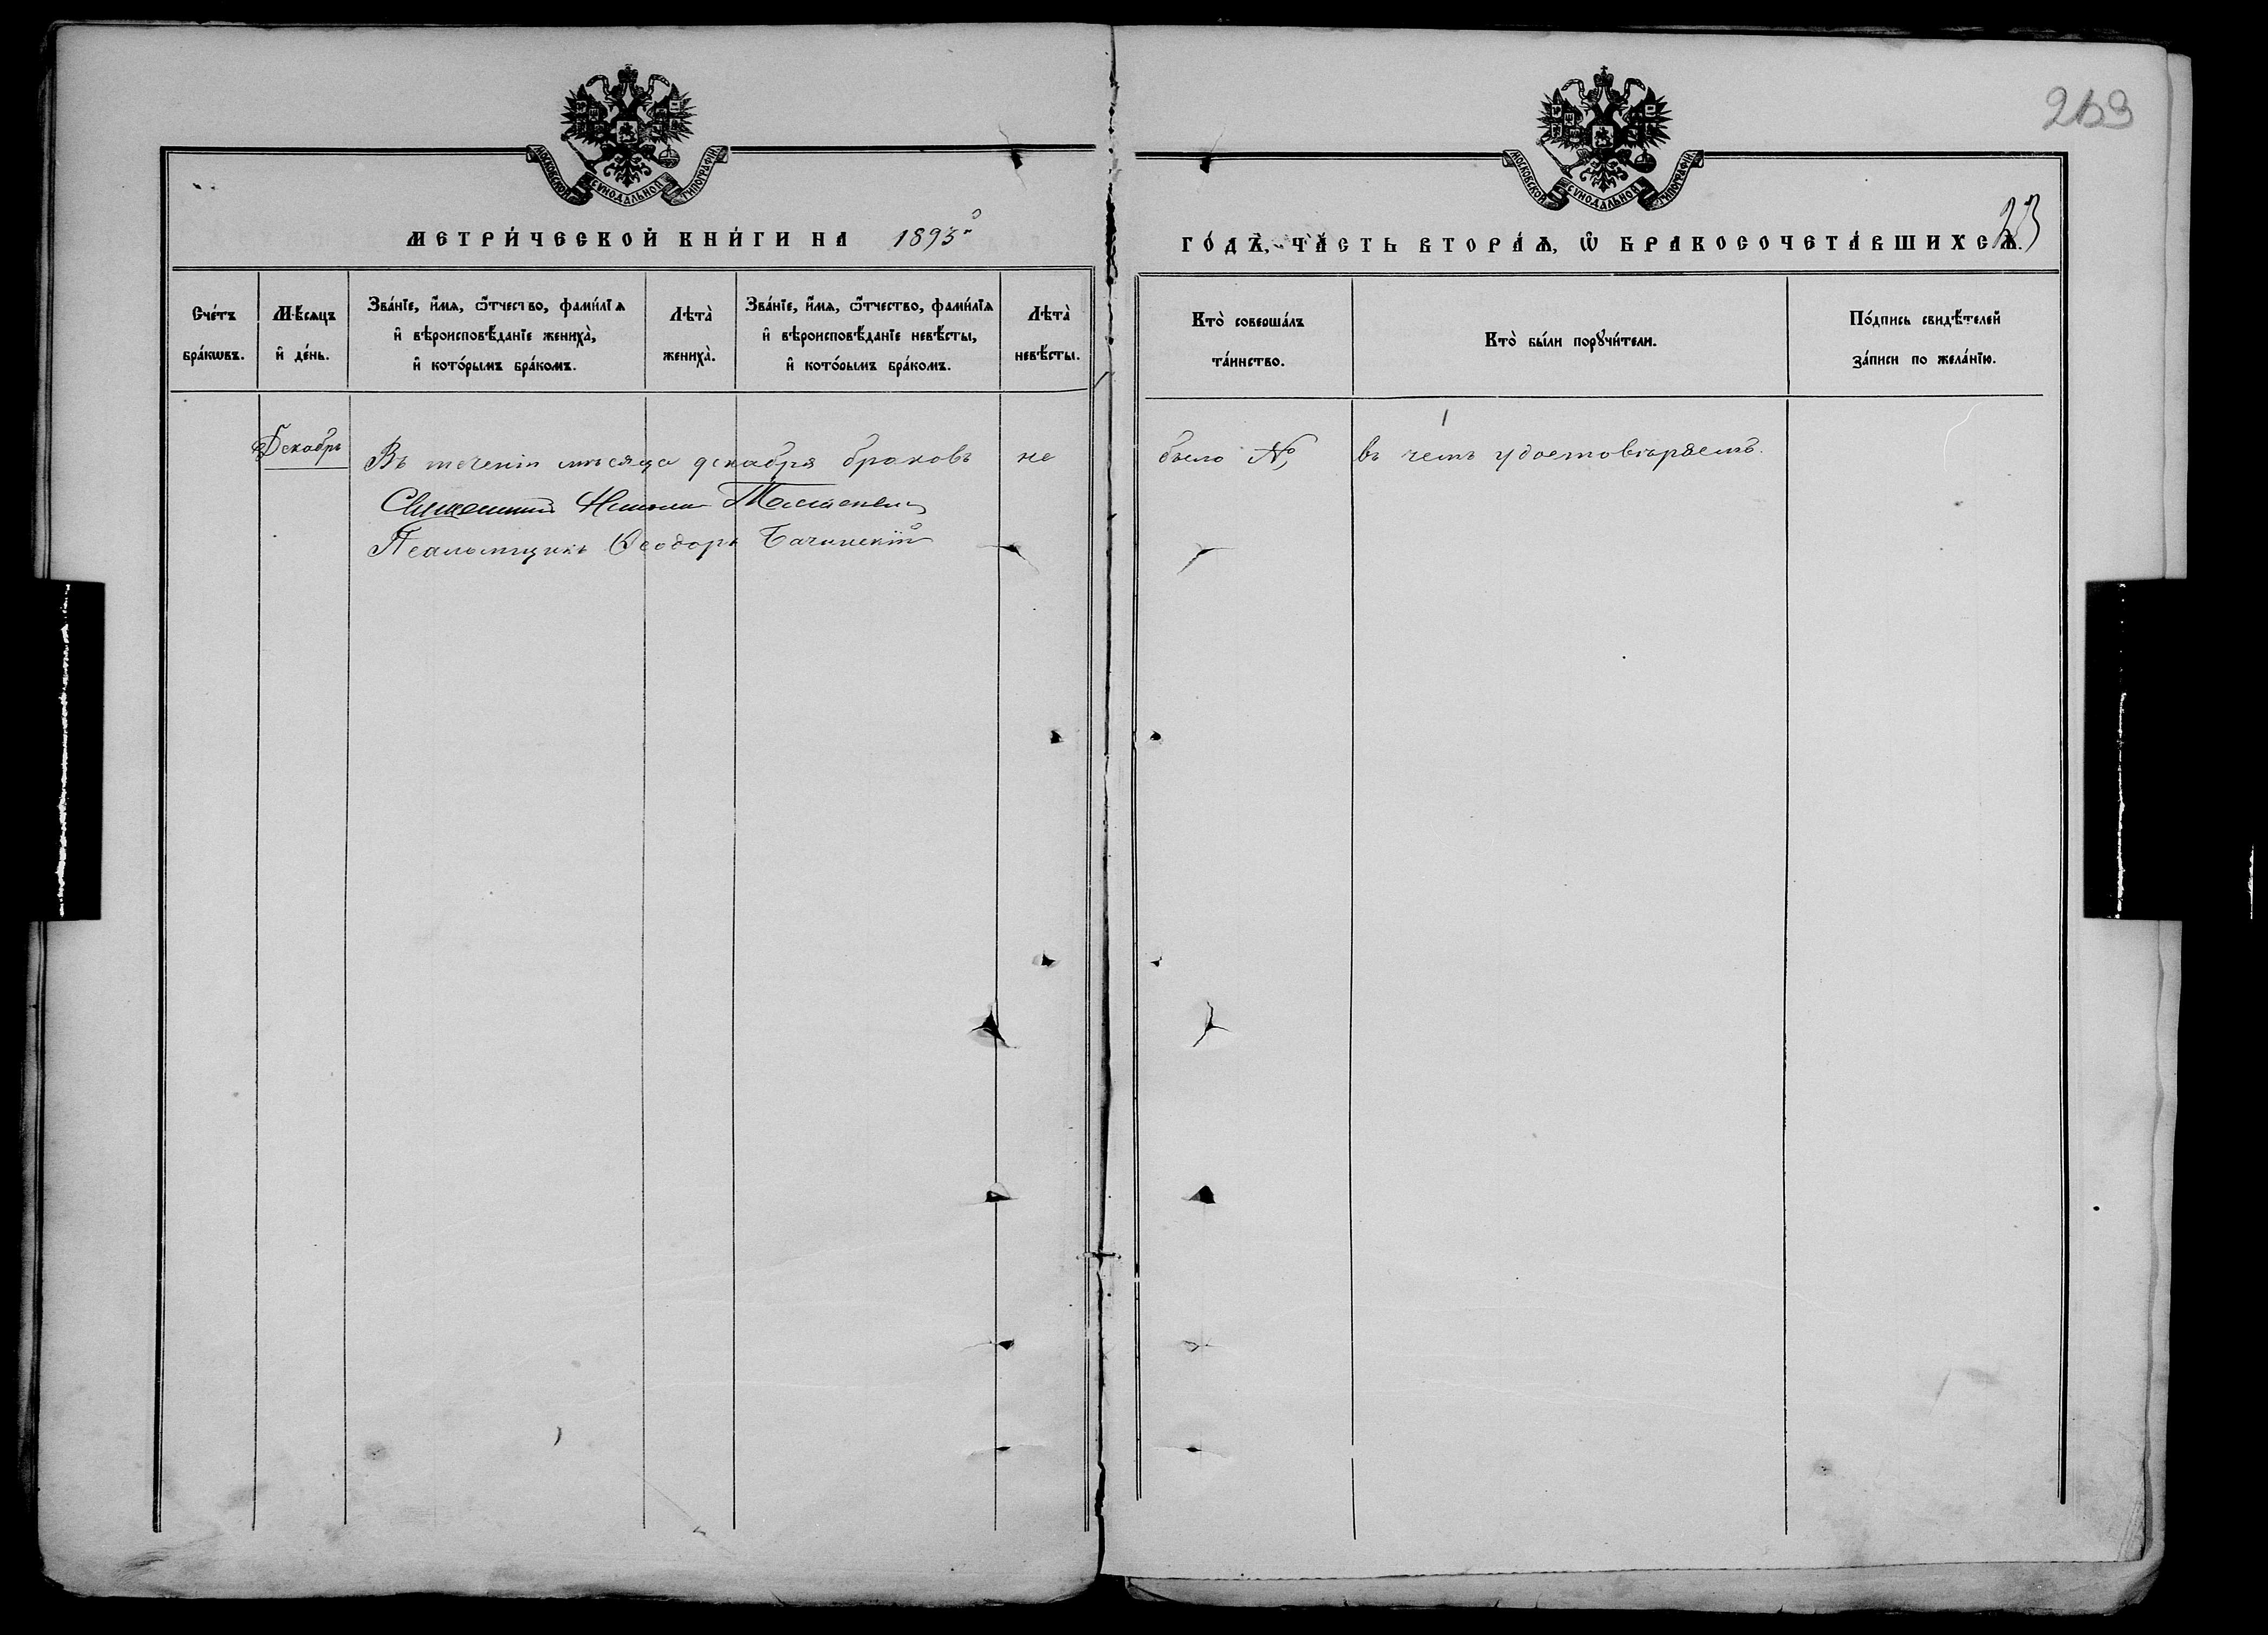 253
МОСКОВСКОЙ СѴНОДАЛЬНОЙ ТИПОГРАФІИ.
МОСКОВСКОЙ СѴНОДАЛЬНОЙ ТИПОГРАФІИ.
23
МЕТРИ́ЧЕСКОЙ КНИ́ГИ НА 1893й
ГО́ДЪ, ЧА́СТЬ ВТОРА́Ѧ, Ѽ БРАКОСОЧЕТА́ВШИХСѦ.
Сче́тъ
бра́кѡвъ.
Мѣ́сѧцъ
и҆ де́нь.
Зва́нїе, и҆́мѧ, ѻ҆́тчество, фами́лїѧ
и҆ вѣроисповѣ́данїе жениха̀,
и҆ кото́рымъ бра́комъ.
Лѣта̀
жениха̀.
Зва́нїе, и҆́мѧ, ѻ҆́тчество, фами́лїѧ
и҆ вѣроисповѣ́данїе невѣ́сты,
и҆ кото́рымъ бра́комъ.
Лѣта̀
невѣ́сты.
Кто̀ соверша́лъ
та́инство.
Кто̀ бы́ли порꙋчи́тели.
По́дпись свидѣ́телей
за́писи по жела́нїю.
Декабрь
Въ теченіи мѣсяца декабря браковъ не было № въ чемъ удостовѣряемъ.
Священникъ
Псаломщикъ Ѳеодоръ Бачинскій